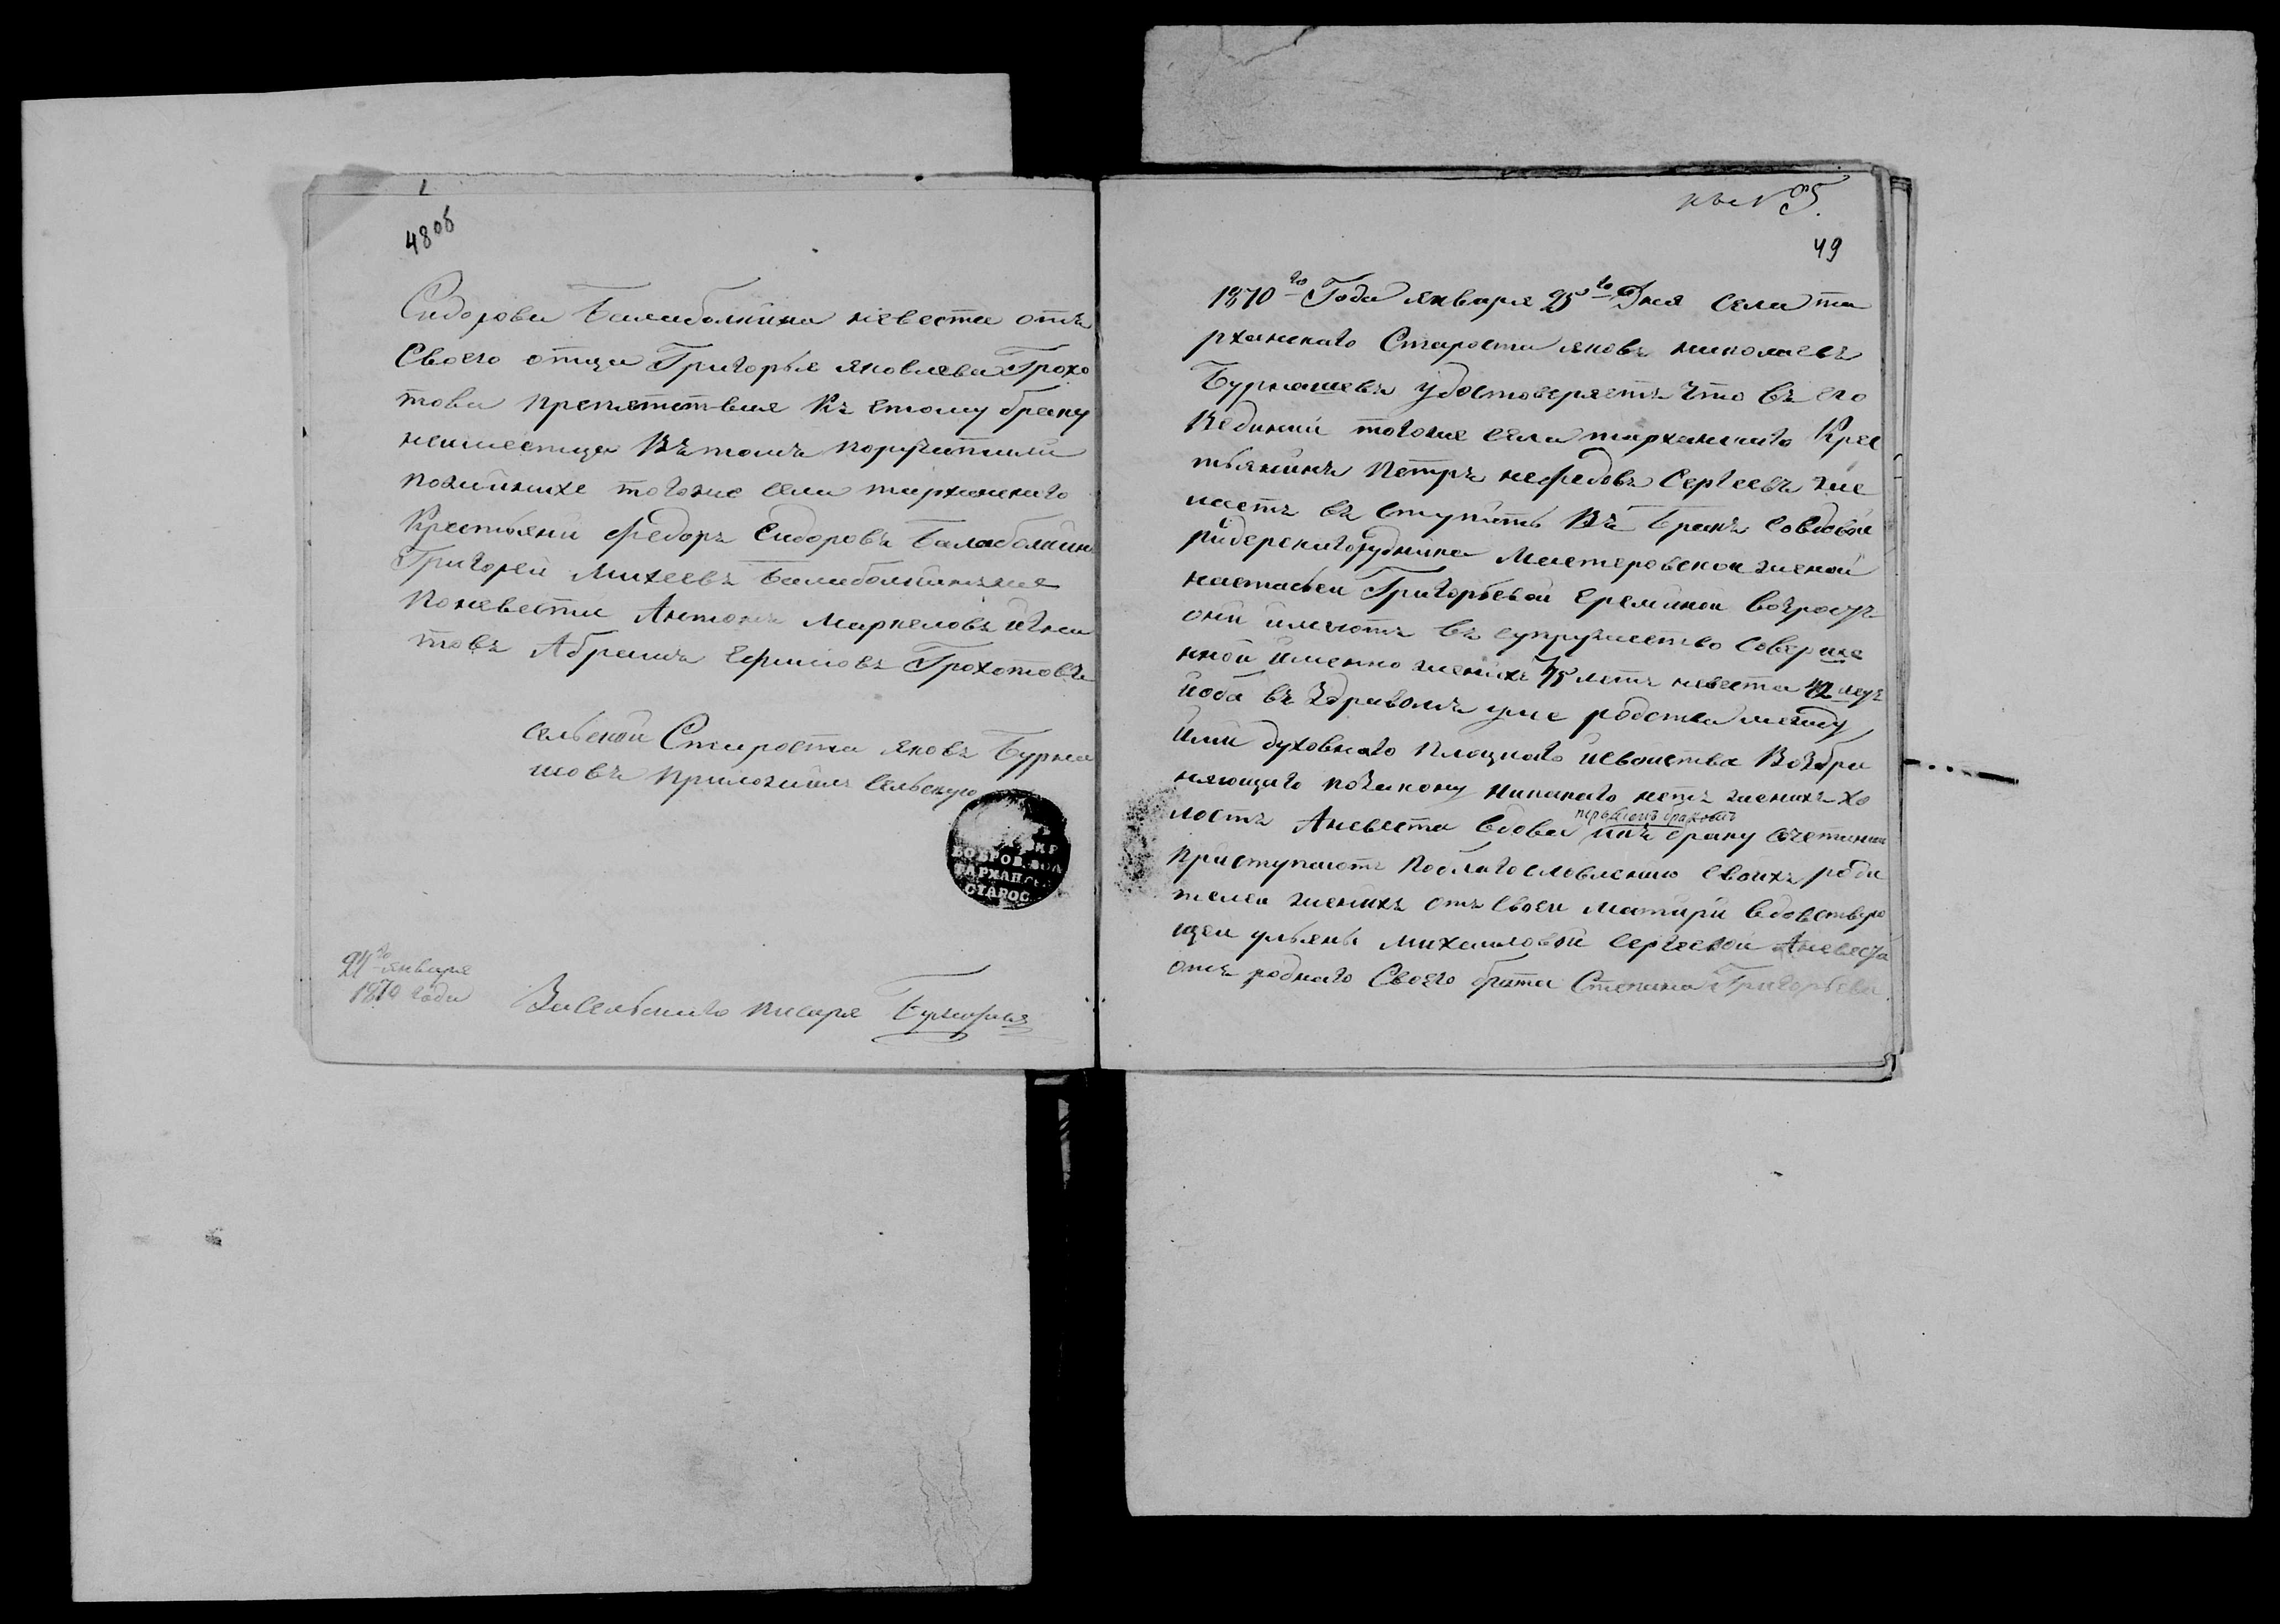 48 об
Сидорова Балаболкина невеста отъ
Своего отца Григорья яковлева Грохо
това препятствия Къ етому браку
неимеетца Въ томъ поручители
пожинихе тогоже села тарханскаго
Крестьяни Федоръ Сидоровъ Балаболкинъ
Григорей Михеевъ Балаболкинъ
Поневести Антонъ Маркеловъ Игна
товъ Абрамъ Ефимовъ Грохотовъ
сельской Староста яковъ Бурна
шовъ приложилъ сельскую
БОБРОВ. ВОЛ
ТАРХАНСК
СТАРОС
24го января
1870 года
Засельскаго писаря
къ № 5.
49
1870го Года января 25го Дня села та
рханскаго Староста яковъ николаевъ
Бурнашевъ удостоверяетъ что въ его
Вединии тогоже села тарханскаго Крес
тьянинъ Петръ нефедовъ Сергеевъ же
лаетъ въ ступить Въ Бракъ Совдовой
ридерскагорудника Мастеровской женой
настасьей Григорьевой ереминой возрастъ
они имеютъ въ супружество соверше
нной именно женихъ 45 летъ невеста 42 летъ
иоба въ здравомъ уме родства между
ими духовнаго плоцкаго исвоиства Возбра
няющаго позакону никакаго нетъ женихъ хо
первымъ бракомъ
лостъ Аневеста вдова икъ браку сочетанию
приступаютъ поблагословлению своихъ роди
телей женихъ отъ своей матири вдовствую
щей ульяны михаиловой сергеевой Аневеста
отъ роднаго Своего брата Степана Григорьева